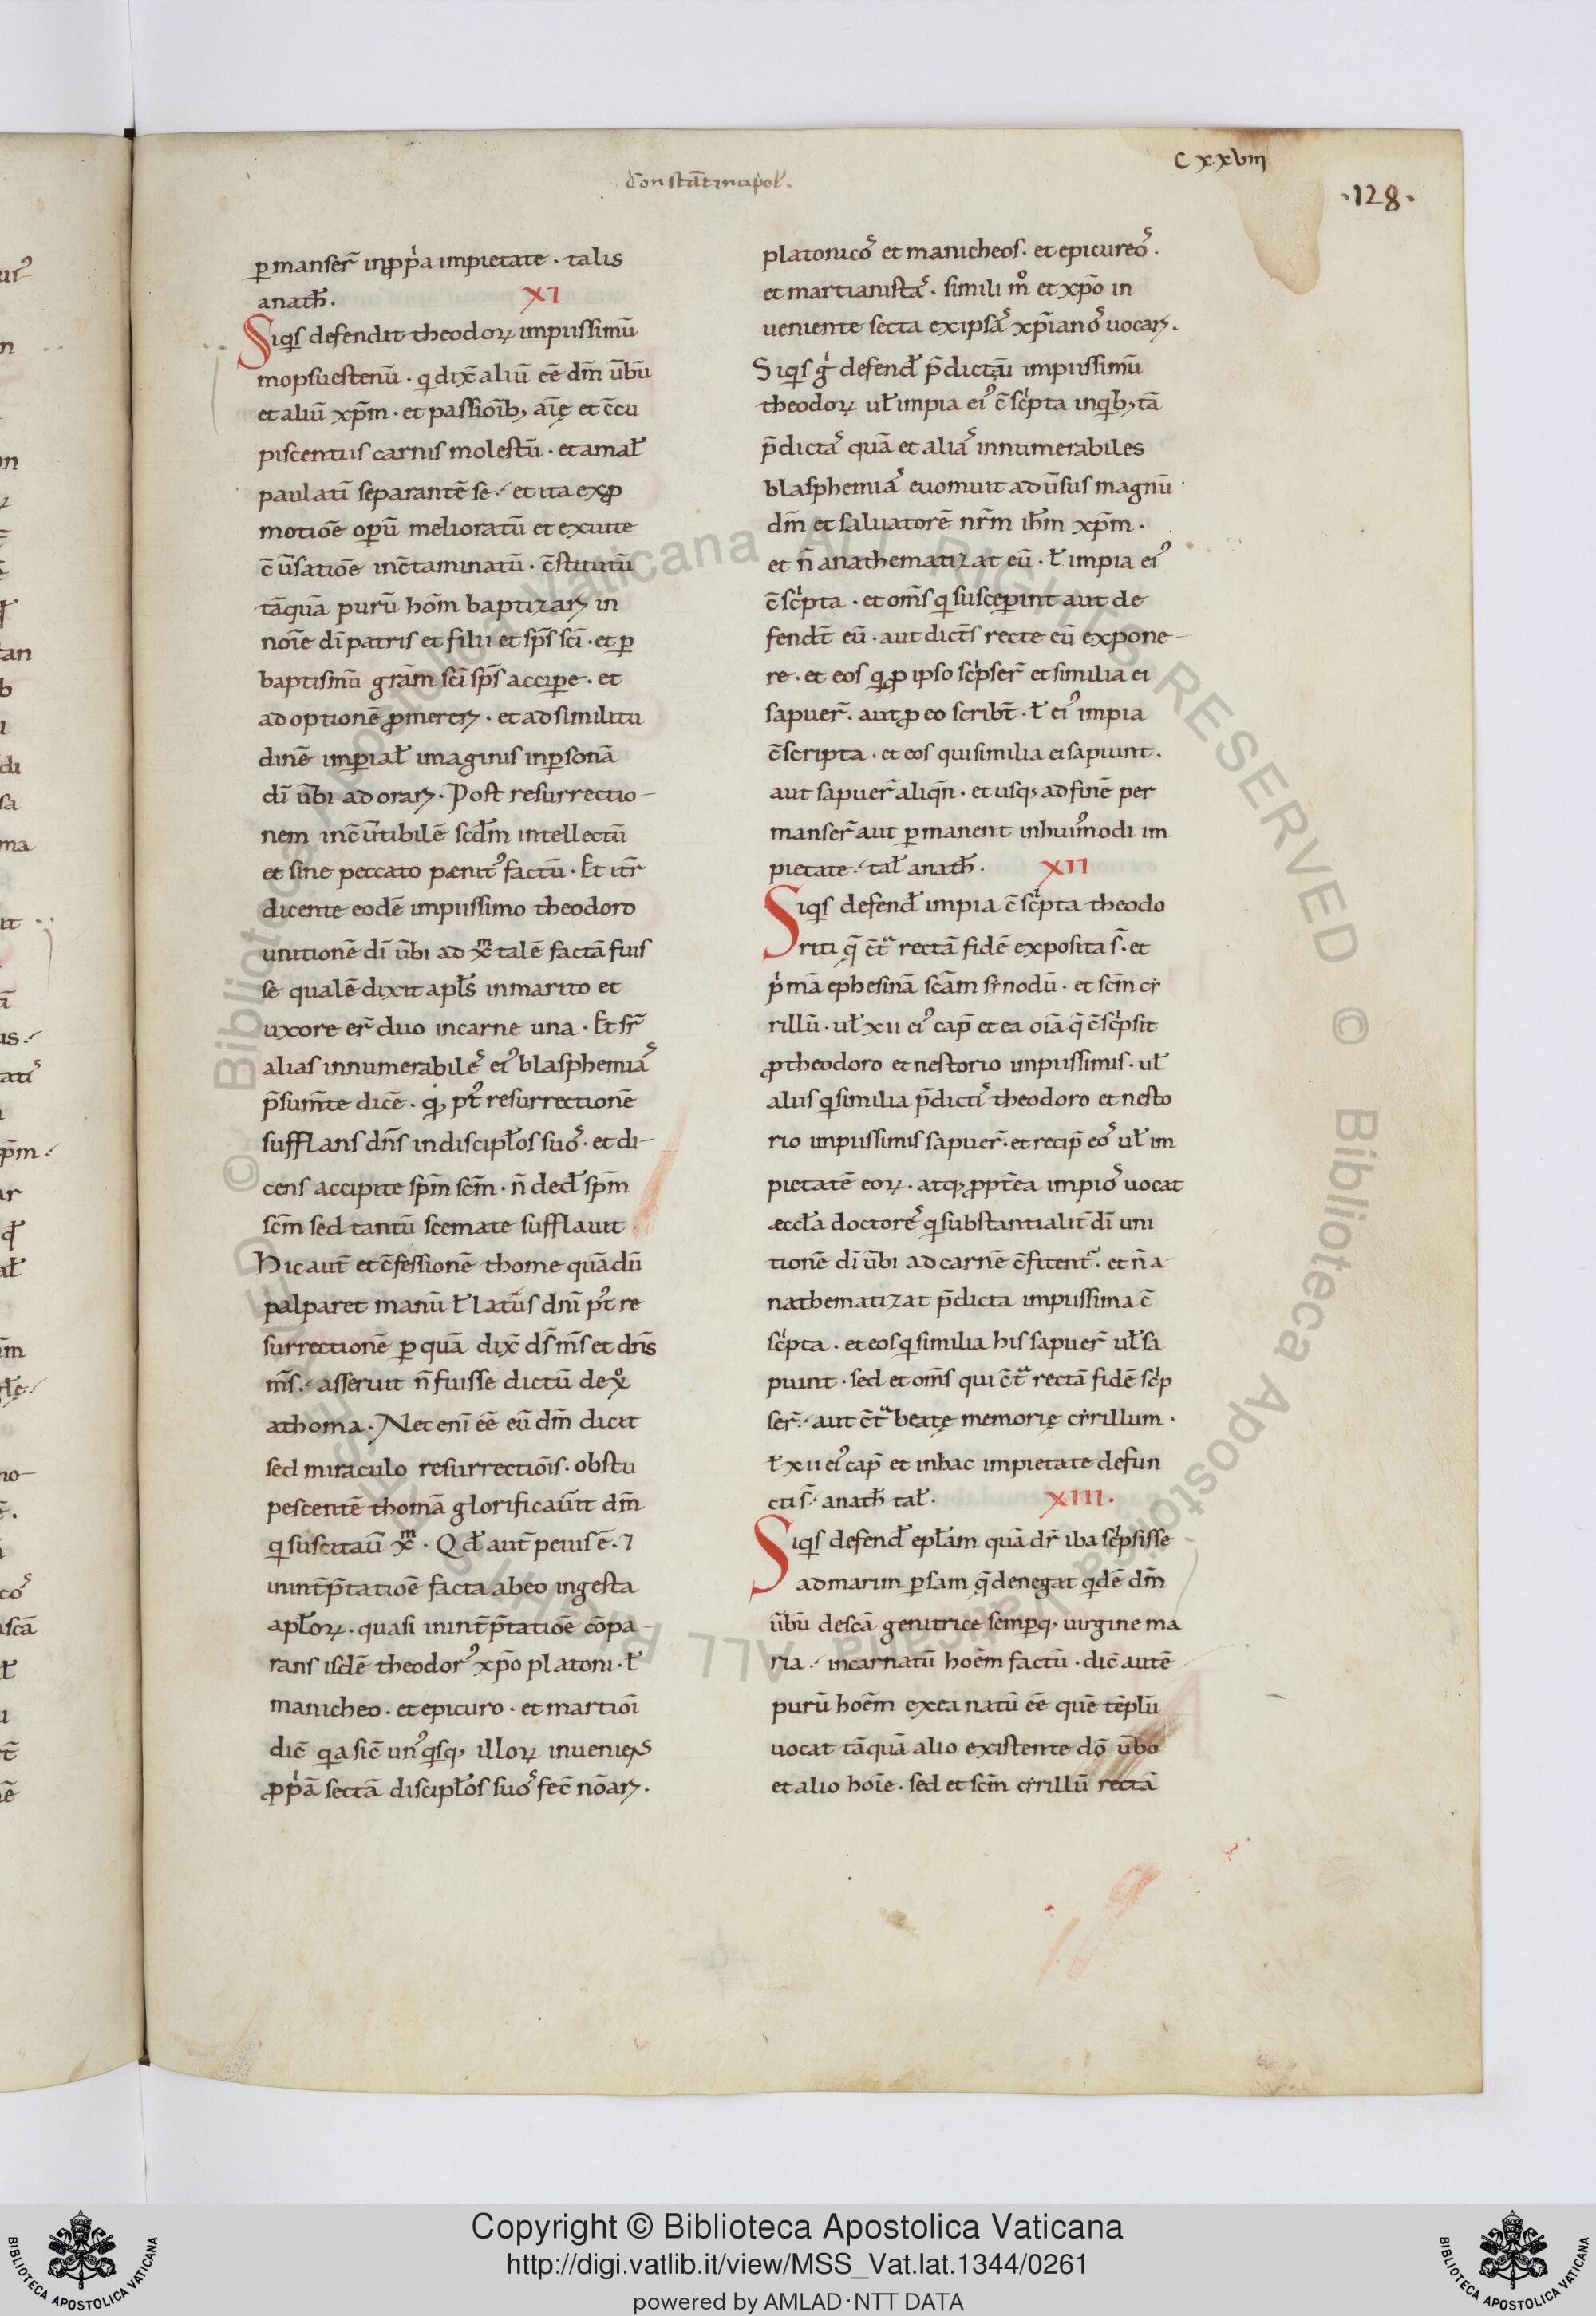 Constãtinapoł.
CXXVIII
·128·
ꝑmanser̃ inꝓpͥa impietate · talis
anath̃. XI
Siqͥs defendit theodoꝝ impiissimũ
mopsuestenũ · q dix̃ aliũ eẽ dm̃ ũbũ
et aliũ xp̃m · et passioĩbꝫ aĩę et c̃cu
piscentiis carnis molestũ · et amał
paulatĩ separantẽ se · et ita exꝓ
motiõe oꝑũ melioratũ et exuite
c̃ũsatiõe inc̃taminatũ · c̃stitutũ
tãquã purũ hõm baptizarꝫ in
noĩe dĩ patris et filii et sp̃s scĩ · et ꝑ
baptismũ gr̃am scĩ sp̃s acciꝑe · et
adoptionẽ ꝓmererꝫ · et ad similitu
dinẽ imꝑiał imaginis inꝑsonã
dĩ ũbi adorarꝫ · Post resurrectio-
nem inc̃ũtibilẽ scd̃m intellectũ
et sine peccato pænitꝰ factũ · Et itr̃
dicente eodẽ impiissimo theodoro
unitionẽ dĩ ũbi ad xc̃ͫ talẽ factã fuis
se qualẽ dixit apłs in marito et
uxore er̃ duo in carne una · Et sr̃
alias innumerabileˢ eiꝰ blasphemiaˢ
p̃sum̃te dicẽ · qꝫ ptꝰ resurrectionẽ
sufflans dñs in discipłos suoˢ · et di-
cens accipite sp̃m scm̃ · ñ ded̃ sp̃m
scm̃ sed tantũ scemate sufflauit
Hic aut̃ et c̃fessionẽ thome quã dũ
palparet manũ ł latũs dnĩ ptꝰ re
surrectionẽ ꝑ quã dix̃ ds̃ ms̃ et dñs
ms̃ · asseruit ñ fuisse dictũ de xͦ
a thoma · Nec enĩ eẽ eũ dm̃ dicit
sed miraculo resurrectiõis · obstu
pescentẽ thomã glorificaũit dm̃
q suscitaũ xc̃ͫ · Qd̃ aut̃ peius ẽ · ⁊
in int̃p̃tatiõe facta ab eo in gesta
apłoꝝ · quasi in int̃p̃tatiõe cõpa-
rans isdẽ theodorꝰ xp̃o platoni · ł
manicheo · et epicuro · et martiõi
dic̃ qa sic̃ unꝰqͥsqꝫ illoꝝ inueniens
ꝓpͥã sectã discipłos suoˢ fec̃ nõarꝫ ·
platonicoˢ et manicheos · et epicureoˢ ·
et martianistaˢ · simili mͦ et xp̃o in
ueniente secta ex ipsaˢ xp̃ianoˢ uocarꝫ ·
Siqͥs gͥ defend̃ p̃dictũ impiissimũ
theodoꝝ uł impia eiꝰ c̃scͥpta in qͥbꝫ tã
p̃dictaˢ quã et aliaˢ innumerabiles
blasphemiaˢ euomuit ad ũsus magnũ
dm̃ et saluatorẽ nr̃m ih̃m xp̃m ·
et ñ anathematizat eũ · ł impia eiꝰ
c̃scͥpta · et oms̃ q susceꝑint aut de
fend̃t eũ · aut dict̃s recte eũ expone-
re · et eos q ꝓ ipso scͥpser̃ et similia ei
sapuer̃ · aut ꝓ eo scrib̃t · ł eiꝰ impia
c̃scripta · et eos qui similia ei sapiunt ·
aut sapuer̃ aliqñ · et usqꝫ ad finẽ per
manser̃ aut ꝑmanent in huiꝰmodi im
pietate · tał anath̃ · XII
Siqͥs defend̃ impia c̃scͥpta theodo
riti q̃ c̃tͣ rectã fidẽ exposita s̃ · et
pͥmã ephesinã scãm sinodũ · et scm̃ cẏ
rillũ · uł xii eiꝰ cap̃ et ea oĩa q̃ c̃scͥpsit
ꝓ theodoro et nestorio impiissimis · uł
aliis q similia p̃dictiˢ theodoro et nesto
rio impiissimis sapuer̃ · et recip̃ eoˢ uł im
pietatẽ eoꝝ · atqꝫ ꝓpt̃ea impioˢ uocat
æccła doctoreˢ q substantialit̃ dĩ uni
tionẽ dĩ ũbi ad carnẽ c̃fitent̃ · et ñ a
nathematizat p̃dicta impiissima c̃
scͥpta · et eos q similia his sapuer̃ uł sa
piunt · sed et oms̃ qui c̃tͣ rectã fidẽ scͥp
ser̃ · aut c̃tͣ beatę memorię cẏrillum ·
ł xii eiꝰ cap̃ et in hac impietate defun
cti s̃ · anath̃ tał · XIII·
Siqͥs defend̃ epłam quã dr̃ iba scͥpsisse
ad marim ꝑsam q̃ denegat qͥdẽ dm̃
ũbũ de scã genitrice semꝑqꝫ uirgine ma
ria · incarnatũ hoẽm factũ · dic̃ autẽ
purũ hoẽm ex ea natũ eẽ quẽ tẽplũ
uocat tãquã alio existente dõ ũbo
et alio hoĩe · sed et scm̃ cẏrillũ rectã
© Biblioteca Apostolica Vaticana ALL RIGHTS RESERVED © Biblioteca Apostolica Vaticana ALL RIGHTS RESERVED
Copyright © Biblioteca Apostolica Vaticana
http://digi.vatlib.it/view/MSS_Vat.lat.1344/0261
powered by AMLAD·NTT DATA
BIBLIOTECA APOSTOLICA VATICANA
BIBLIOTECA APOSTOLICA VATICANA